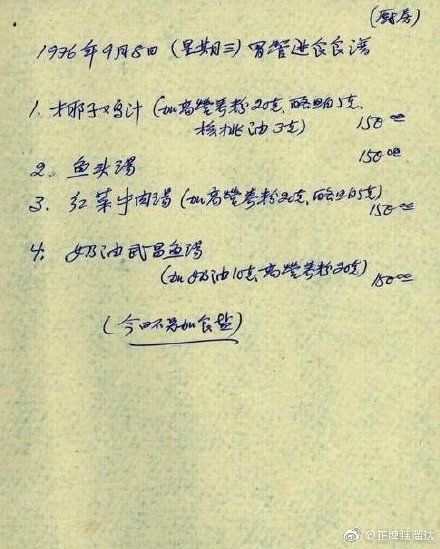 (厨房)
1976年9月8日(星期三)胃管进食食谱
1. 椰子鸡汁(加高营养粉20克,酪胨5克,
核桃油3克) 150cc
2. 鱼头汤 150cc
3. 红菜牛肉汤(加高营养粉20克,酪胨5克) 150cc
4. 奶油武昌鱼汤
(加奶油10克,高营养粉20克) 150cc
(今日不另加食盐)
@正牌猴溜达